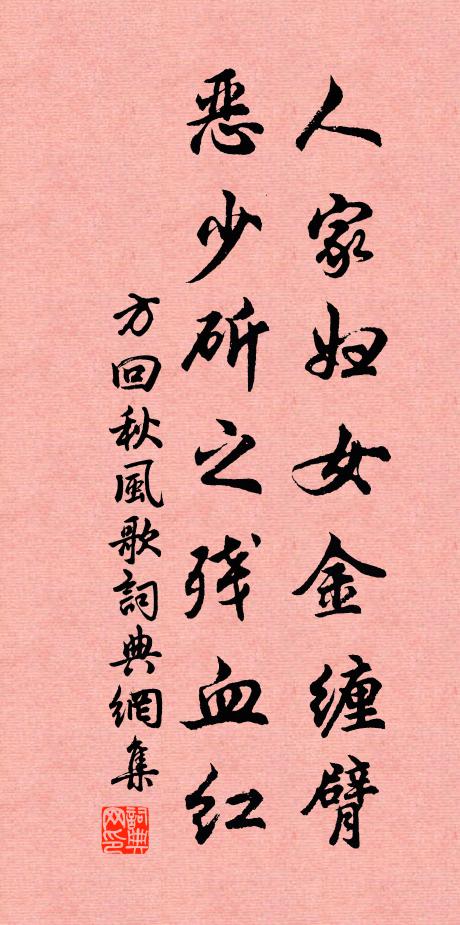 人家妇女金缠臂
恶少斫之残血红
方回秋風歌詞典網集
詞典网印